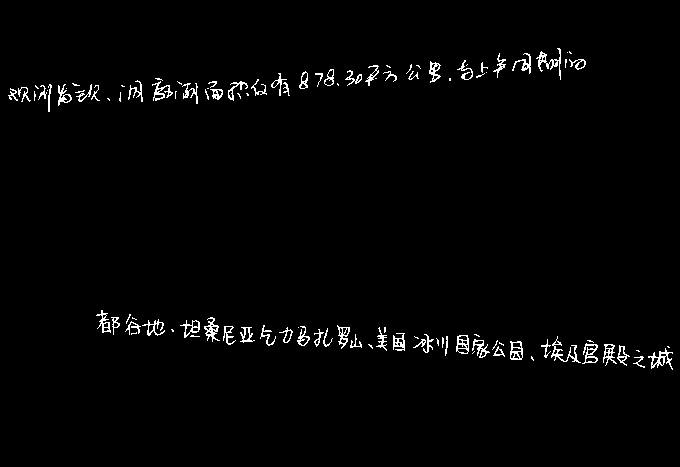 观测发现、洞庭湖面积仅有878.30平方公里,与上年同期的
都谷地、坦桑尼亚乞力马扎罗山、美国冰川国家公园、埃及宫殿之城